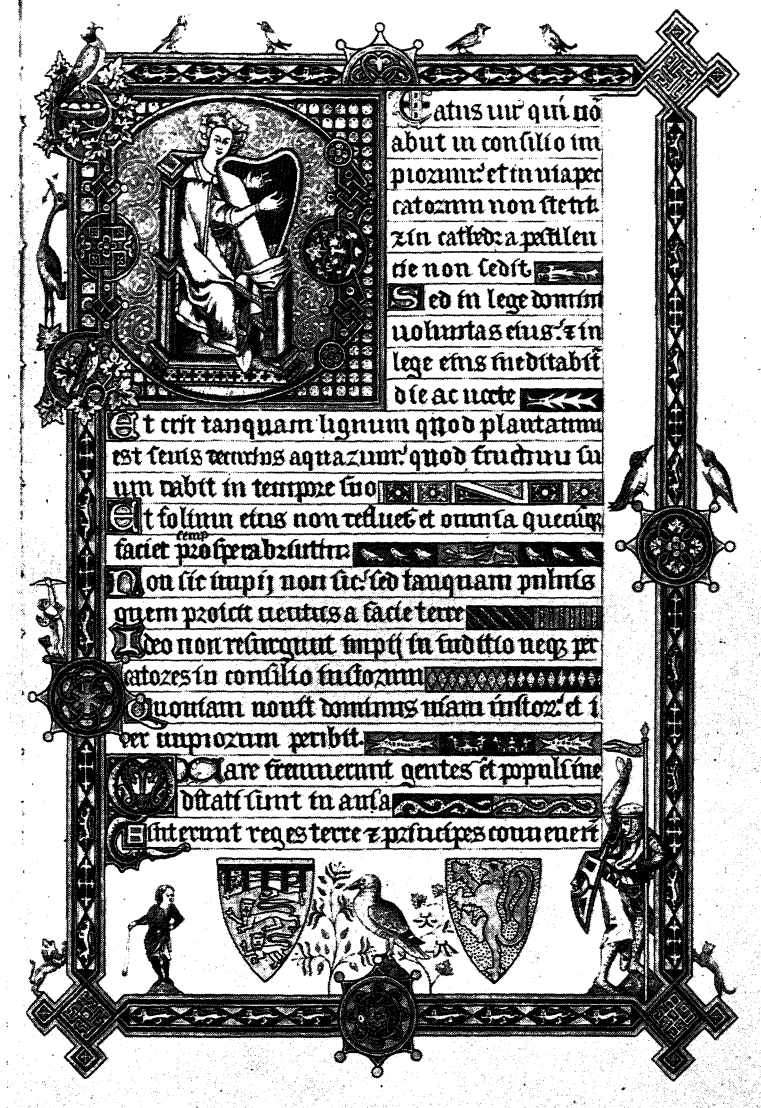 Eatus uir qui nō
abiit in consilio im
piorum: et in uia pec
catorum non stetit
⁊ in cathedra pestilen
cie non sedit
Sed in lege domini
uoluntas eius: ⁊ in
lege eius meditabit
die ac nocte
Et erit tanquam lignum quod plantatum
est secus decursus aquarum: quod fructum su
um dabit in tempore suo
Et folium eius non defluet et omnia quecūqꝫ
faciet semp prosperabuntur
Non sic impij non sic: sed tanquam puluis
quem proicit uentus a facie terre
Ideo non resurgunt impij in iudicio neqꝫ pec
catores in consilio iustorum
Quoniam nouit dominus uiam iustorꝫ et i
ter impiorum peribit.
Quare fremuerunt gentes et populi me
ditati sunt in ania
Astiterunt reges terre ⁊ principes conuenerūt